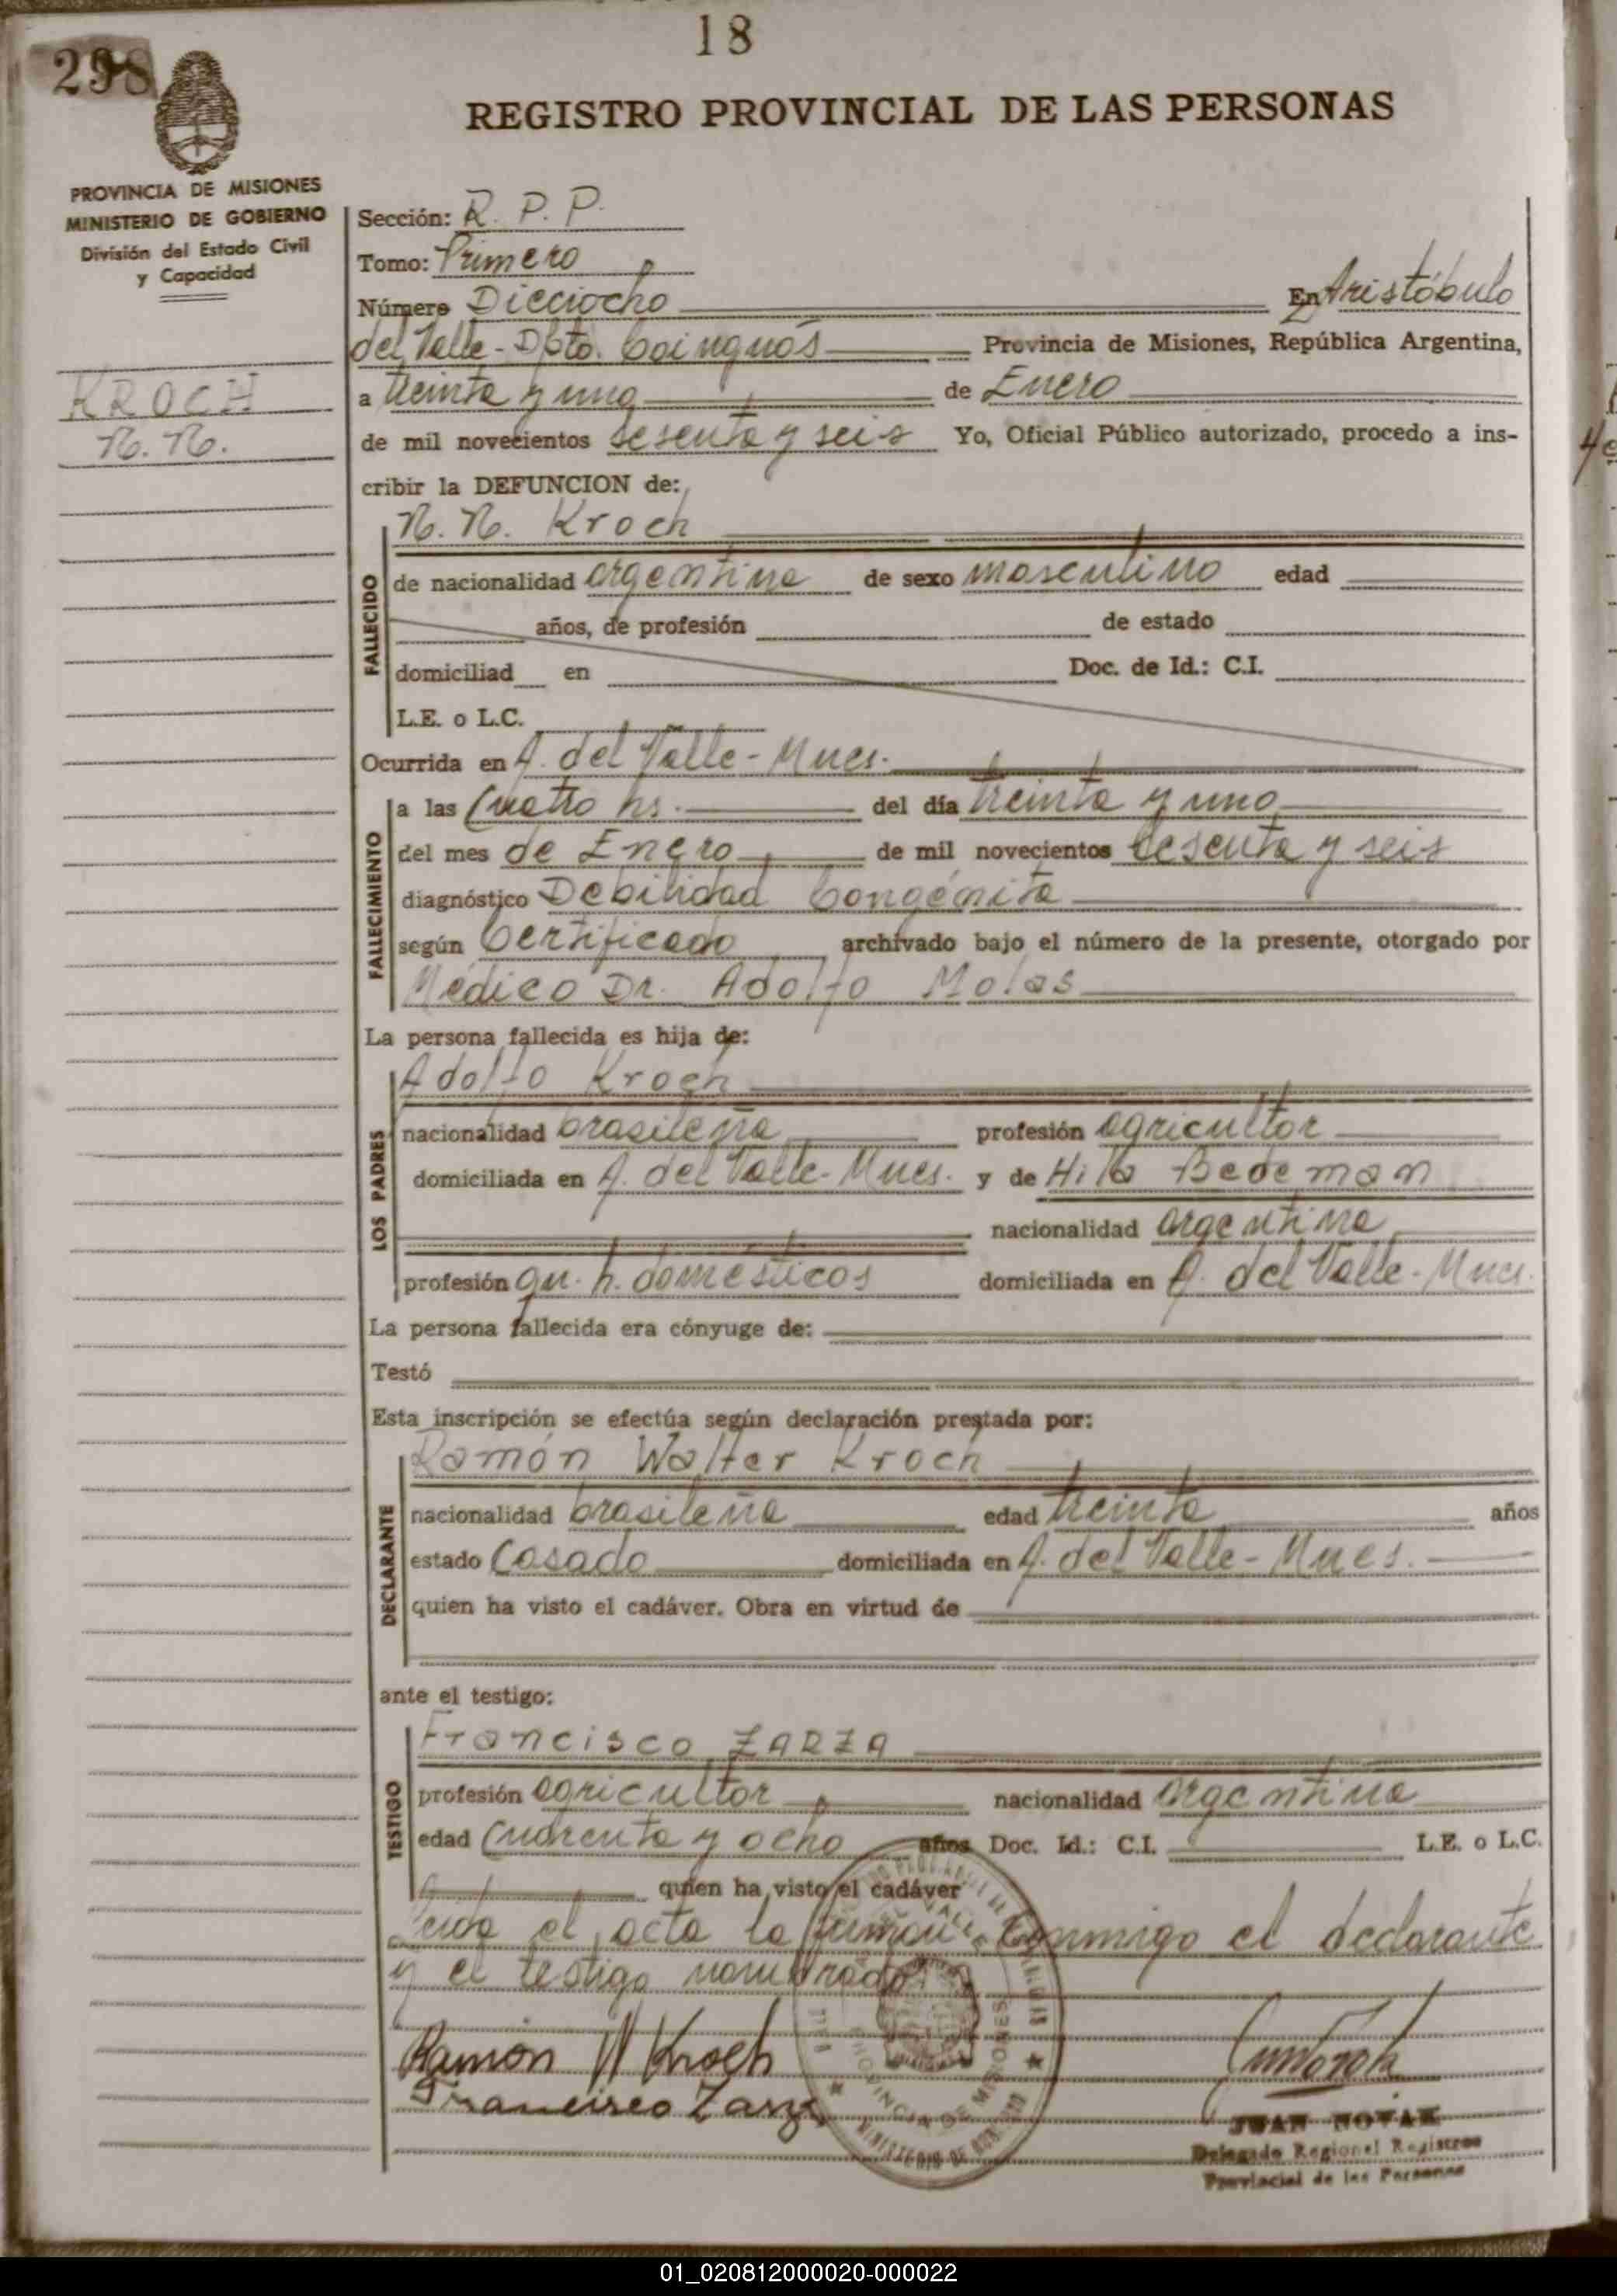 18
298
REGISTRO PROVINCIAL DE LAS PERSONAS
PROVINCIA DE MISIONES
MINISTERIO DE GOBIERNO
División del Estado Civil
y Capacidad
KROCH
N. N.
Sección: R. P. P.
Tomo: Primero
Número Dieciocho En Aristóbulo
del Valle - Dpto. Cainguás Provincia de Misiones, República Argentina,
a treinta y uno de Enero
de mil novecientos sesenta y seis Yo, Oficial Público autorizado, procedo a ins-
cribir la DEFUNCION de:
N. N. Kroch
FALLECIDO
de nacionalidad argentina de sexo masculino edad
años, de profesión de estado
domiciliad en Doc. de Id.: C.I.
L.E. o L.C.
Ocurrida en A. del Valle - Mnes.
FALLECIMIENTO
a las Cuatro hs. del día treinta y uno
del mes de Enero de mil novecientos sesenta y seis
diagnóstico Debilidad Congénita
según Certificado archivado bajo el número de la presente, otorgado por
Médico Dr. Adolfo Molas
La persona fallecida es hija de:
LOS PADRES
Adolfo Kroch
nacionalidad brasileña profesión agricultor
domiciliada en A. del Valle - Mnes. y de Hilda Bedeman
nacionalidad argentina
profesión qu. h. domésticos domiciliada en A. del Valle - Mnes.
La persona fallecida era cónyuge de:
Testó
Esta inscripción se efectúa según declaración prestada por:
DECLARANTE
Ramón Walter Kroch
nacionalidad brasileña edad treinta años
estado Casado domiciliada en A. del Valle - Mnes.
quien ha visto el cadáver. Obra en virtud de
ante el testigo:
TESTIGO
Francisco ZARZA
profesión agricultor nacionalidad argentina
edad Cuarenta y ocho años Doc. Id.: C.I. L.E. o L.C.
quien ha visto el cadáver
Leída el acta la firman conmigo el declarante
y el testigo nombrado
Ramón W Kroch
Francisco Zarza
PROVINCIA DE MISIONES
JUAN NOVAK
Delegado Regional Registros
Provincial de las Personas
01_020812000020-000022